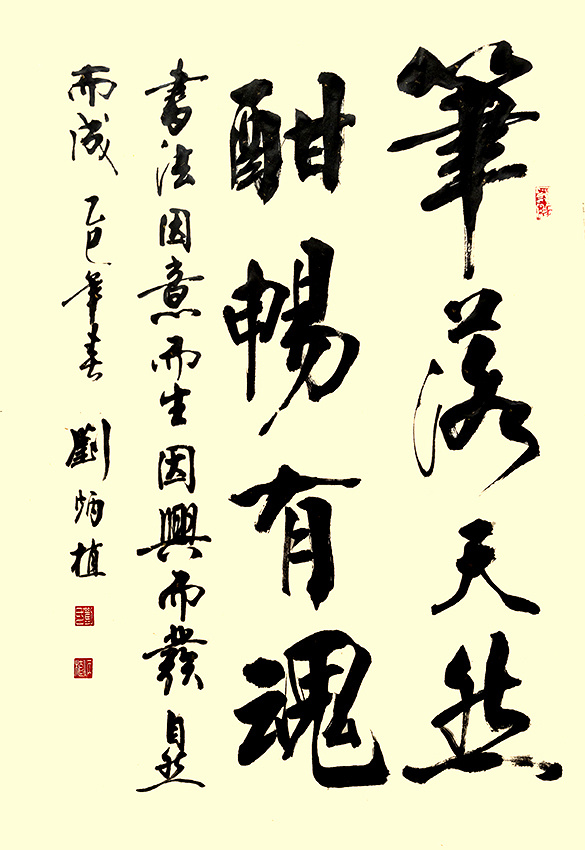 筆落天然
酣暢有魂
書法因意而生因興而發自然
而成 乙巳年春 劉炳植